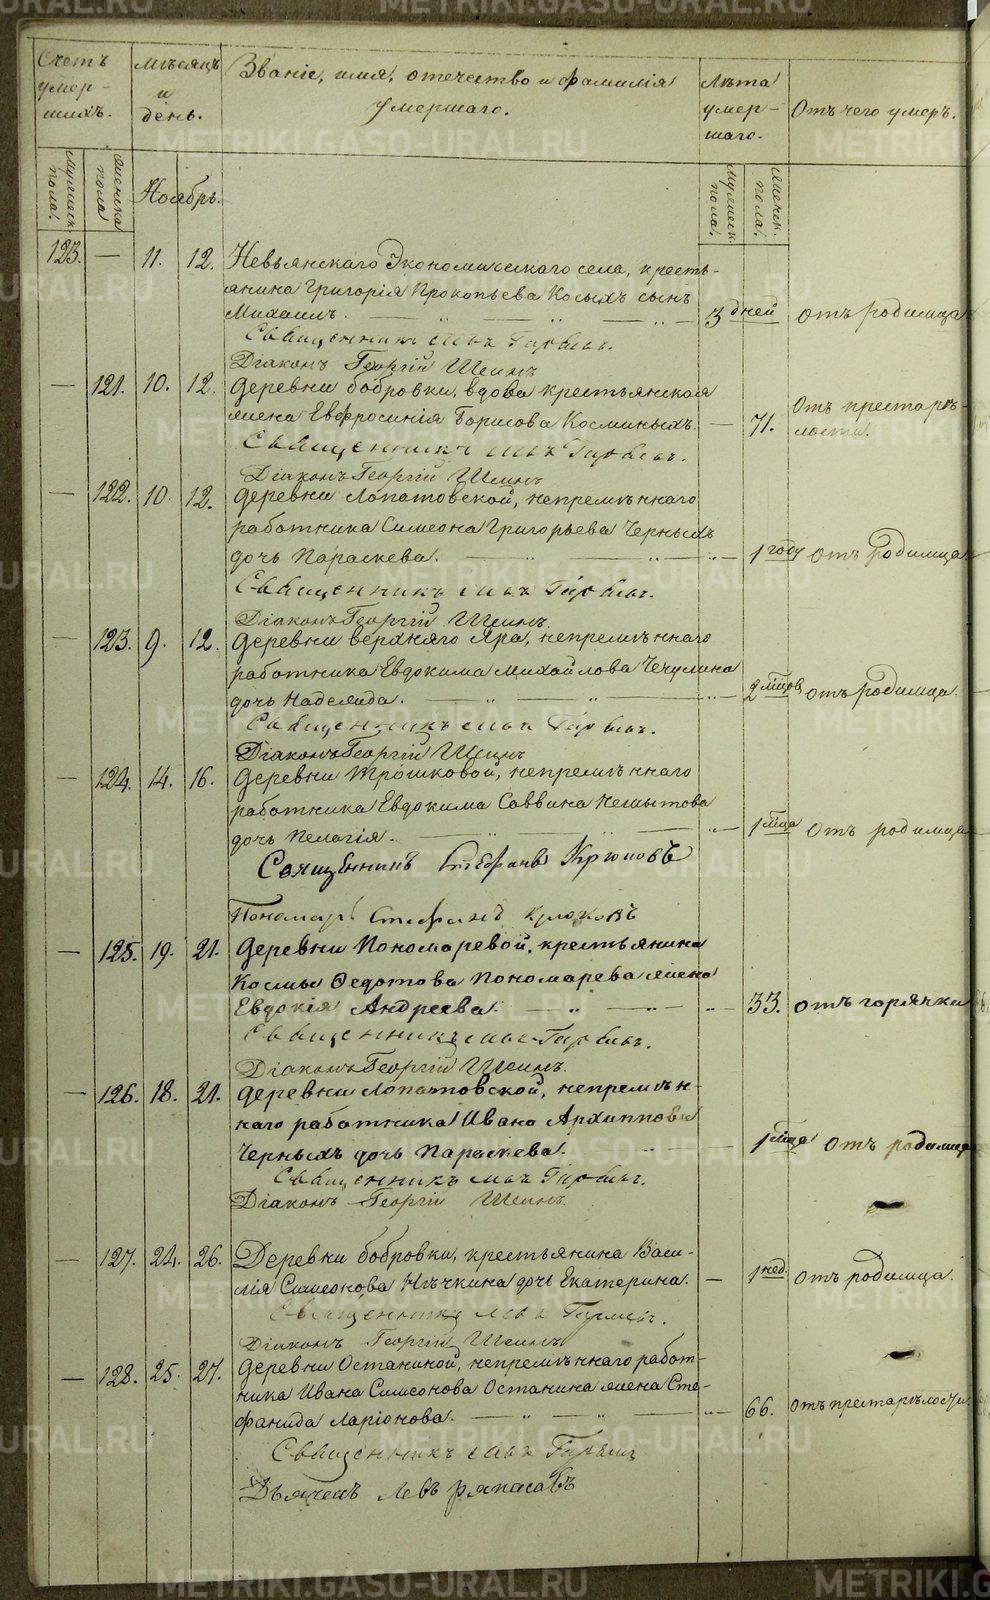 Счетъ умер-
шихъ.
Мѣсяцъ
и
день.
Званіе, имя, отечество и фамилія
умершаго.
Лѣта
умер-
шаго.
Отъ чего умеръ.
мужеск. пола.
женска пола
Ноябрь.
мужеск. пола.
женск. пола.
123. — 11. 12. Невьянскаго Экономическаго села, кресть-
янина Григорія Прокопьева Косыхъ сынъ
Михаилъ. 3 дней отъ родимца
Священникъ
Діаконъ Георгій Шеинъ
— 121. 10. 12. Деревни бобровки, вдова крестьянская
жена Евфросинія Борисова Косминыхъ. — 71. Отъ престарѣ-
лости.
Священникъ
Діаконъ Георгій Шеинъ
— 122. 10. 12. Деревни Лопатовской, непремѣннаго
работника Симеона Григорьева Черныхъ
дочь Параскева. 1 году отъ родимца
Священникъ
Діаконъ Георгій Шеинъ.
— 123. 9. 12. Деревни верхняго Яра, непремѣннаго
работника Евдокима Михайлова Чечулина
дочь Надежда. 2 мѣцов отъ родимца.
Священникъ
Діаконъ Георгій Шеинъ
— 124. 14. 16. Деревни Трошковой, непремѣннаго
работника Евдокима Саввина
дочь Пелагія. 1 мѣца отъ родимца
Священникъ Стефанъ Крюковъ
Пономарь Стефанъ Крюковъ
— 125. 19. 21. Деревни Пономаревой, крестьянина
Космы Ѳедотова Пономарева жена
Евдокія Андреева. 33. отъ горячки
Священникъ
Діаконъ Георгій Шеинъ.
— 126. 18. 21. Деревни Лопатовской, непремѣн-
наго работника Ивана Архиппова
Черныхъ дочь Параскева. — 1 мѣца отъ родимца
Священникъ
Діаконъ Георгій Шеинъ.
— 127. 24. 26. Деревни бобровки, крестьянина Васи-
лія Симеонова Нѣчкина дочь Екатерина. — 1 нед. отъ родимца.
Священникъ
Діаконъ Георгій Шеинъ
— 128. 25. 27. Деревни Останиной, непремѣннаго работ-
ника Ивана Симеонова Останина жена Сте-
фанида Ларіонова. 66. отъ престарѣлости
Священникъ
Дьячекъ Левъ
METRIKI.GASO-URAL.RU